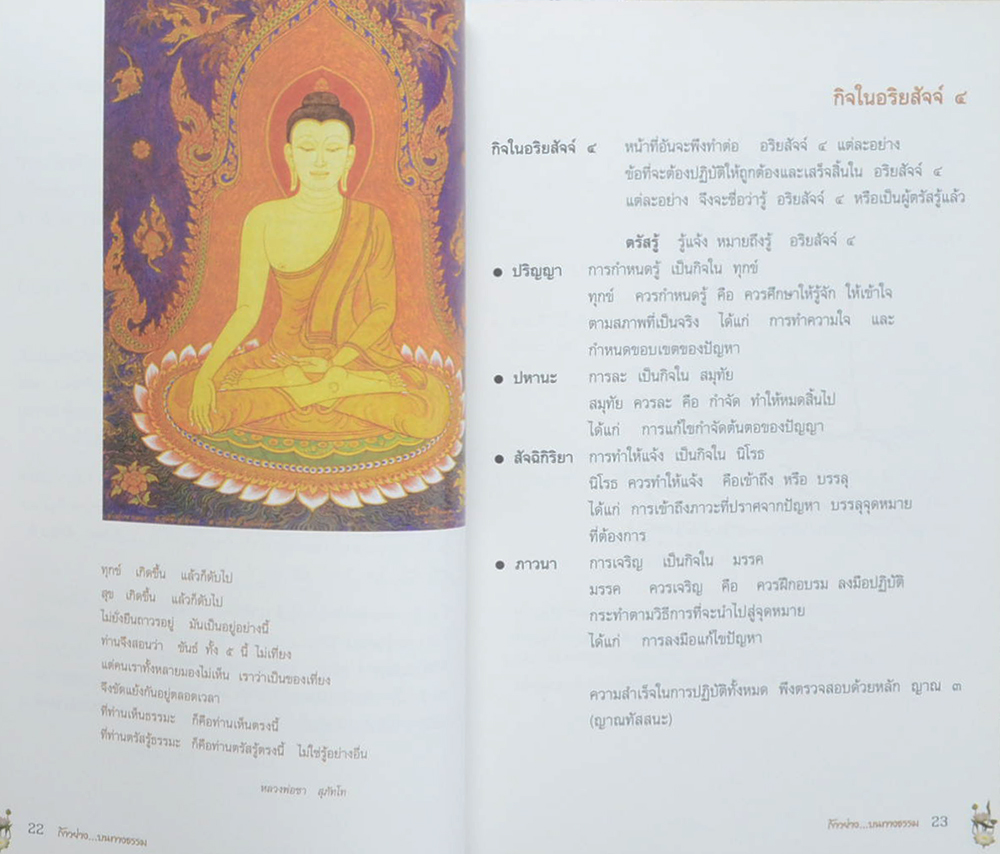 ทุกข์ เกิดขึ้น แล้วก็ดับไป
สุข เกิดขึ้น แล้วก็ดับไป
ไม่ยั่งยืนถาวรอยู่ มันเป็นอยู่อย่างนี้
ท่านจึงสอนว่า ขันธ์ ทั้ง ๕ นี้ ไม่เที่ยง
แต่คนเราทั้งหลายมองไม่เห็น เราว่าเป็นของเที่ยง
จึงขัดแย้งกันอยู่ตลอดเวลา
ที่ท่านเห็นธรรมะ ก็คือท่านเห็นตรงนี้
ที่ท่านตรัสรู้ธรรมะ ก็คือท่านตรัสรู้ตรงนี้ ไม่ใช่รู้อย่างอื่น
หลวงพ่อชา สุภัทโท
22 ก้าวย่าง...บนทางธรรม
กิจในอริยสัจจ์ ๔
กิจในอริยสัจจ์ ๔ หน้าที่อันจะพึงทำต่อ อริยสัจจ์ ๔ แต่ละอย่าง
ข้อที่จะต้องปฏิบัติให้ถูกต้องและเสร็จสิ้นใน อริยสัจจ์ ๔
แต่ละอย่าง จึงจะชื่อว่ารู้ อริยสัจจ์ ๔ หรือเป็นผู้ตรัสรู้แล้ว
ตรัสรู้ รู้แจ้ง หมายถึงรู้ อริยสัจจ์ ๔
● ปริญญา การกำหนดรู้ เป็นกิจใน ทุกข์
ทุกข์ ควรกำหนดรู้ คือ ควรศึกษาให้รู้จัก ให้เข้าใจ
ตามสภาพที่เป็นจริง ได้แก่ การทำความใจ และ
กำหนดขอบเขตของปัญหา
● ปหานะ การละ เป็นกิจใน สมุทัย
สมุทัย ควรละ คือ กำจัด ทำให้หมดสิ้นไป
ได้แก่ การแก้ไขกำจัดต้นตอของปัญญา
● สัจฉิกิริยา การทำให้แจ้ง เป็นกิจใน นิโรธ
นิโรธ ควรทำให้แจ้ง คือเข้าถึง หรือ บรรลุ
ได้แก่ การเข้าถึงภาวะที่ปราศจากปัญหา บรรลุจุดหมาย
ที่ต้องการ
● ภาวนา การเจริญ เป็นกิจใน มรรค
มรรค ควรเจริญ คือ ควรฝึกอบรม ลงมือปฏิบัติ
กระทำตามวิธีการที่จะนำไปสู่จุดหมาย
ได้แก่ การลงมือแก้ไขปัญหา
ความสำเร็จในการปฏิบัติทั้งหมด พึงตรวจสอบด้วยหลัก ญาณ ๓
(ญาณทัสสนะ)
ก้าวย่าง...บนทางธรรม 23